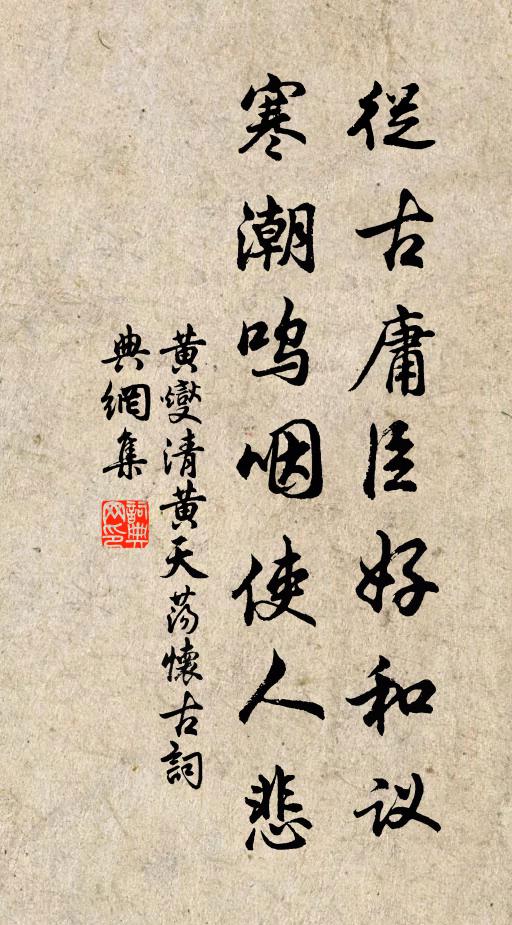 從古庸臣好和议
寒潮呜咽使人悲
黄燮清黄天荡懷古詞
典網集
詞典
网印